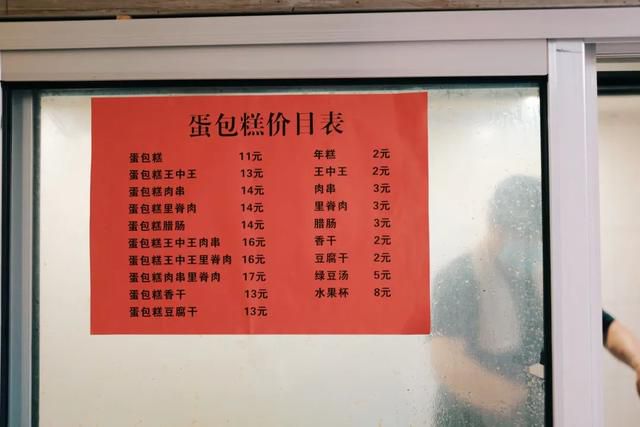 蛋包糕价目表
蛋包糕 11元
蛋包糕王中王 13元
蛋包糕肉串 14元
蛋包糕里脊肉 14元
蛋包糕腊肠 14元
蛋包糕王中王肉串 16元
蛋包糕王中王里脊肉 16元
蛋包糕肉串里脊肉 17元
蛋包糕香干 13元
蛋包糕豆腐干 13元
年糕 2元
王中王 2元
肉串 3元
里脊肉 3元
腊肠 3元
香干 2元
豆腐干 2元
绿豆汤 5元
水果杯 8元